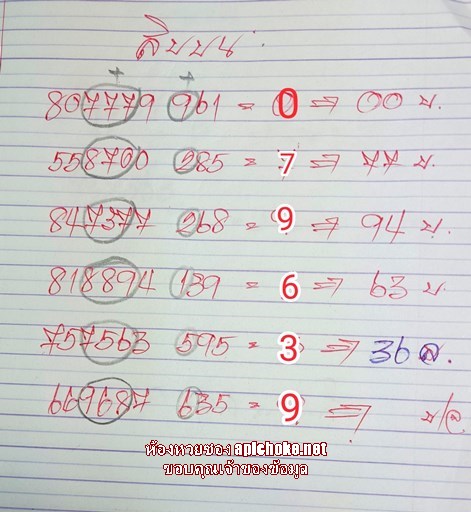 สิบบน
807779 961 = 0 ⇒ 00 บ.
558760 285 = 7 ⇒ 77 บ.
847377 268 = 9 ⇒ 94 บ.
818894 139 = 6 ⇒ 63 บ.
757563 595 = 3 ⇒ 36 ล.
669687 635 = 9 ⇒ บ/ล
ห้องหวยซอง apichoke.net
ขอบคุณเจ้าของข้อมูล